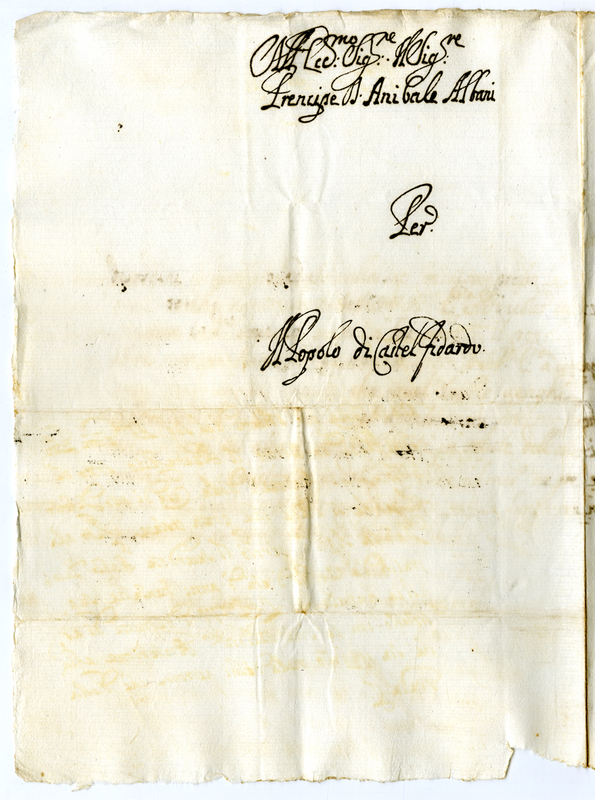 All'Ecc:mo Sig:re Il Sig:re
Prencipe D. Anibale Albani
Per
Il Popolo di Castel fidardo.